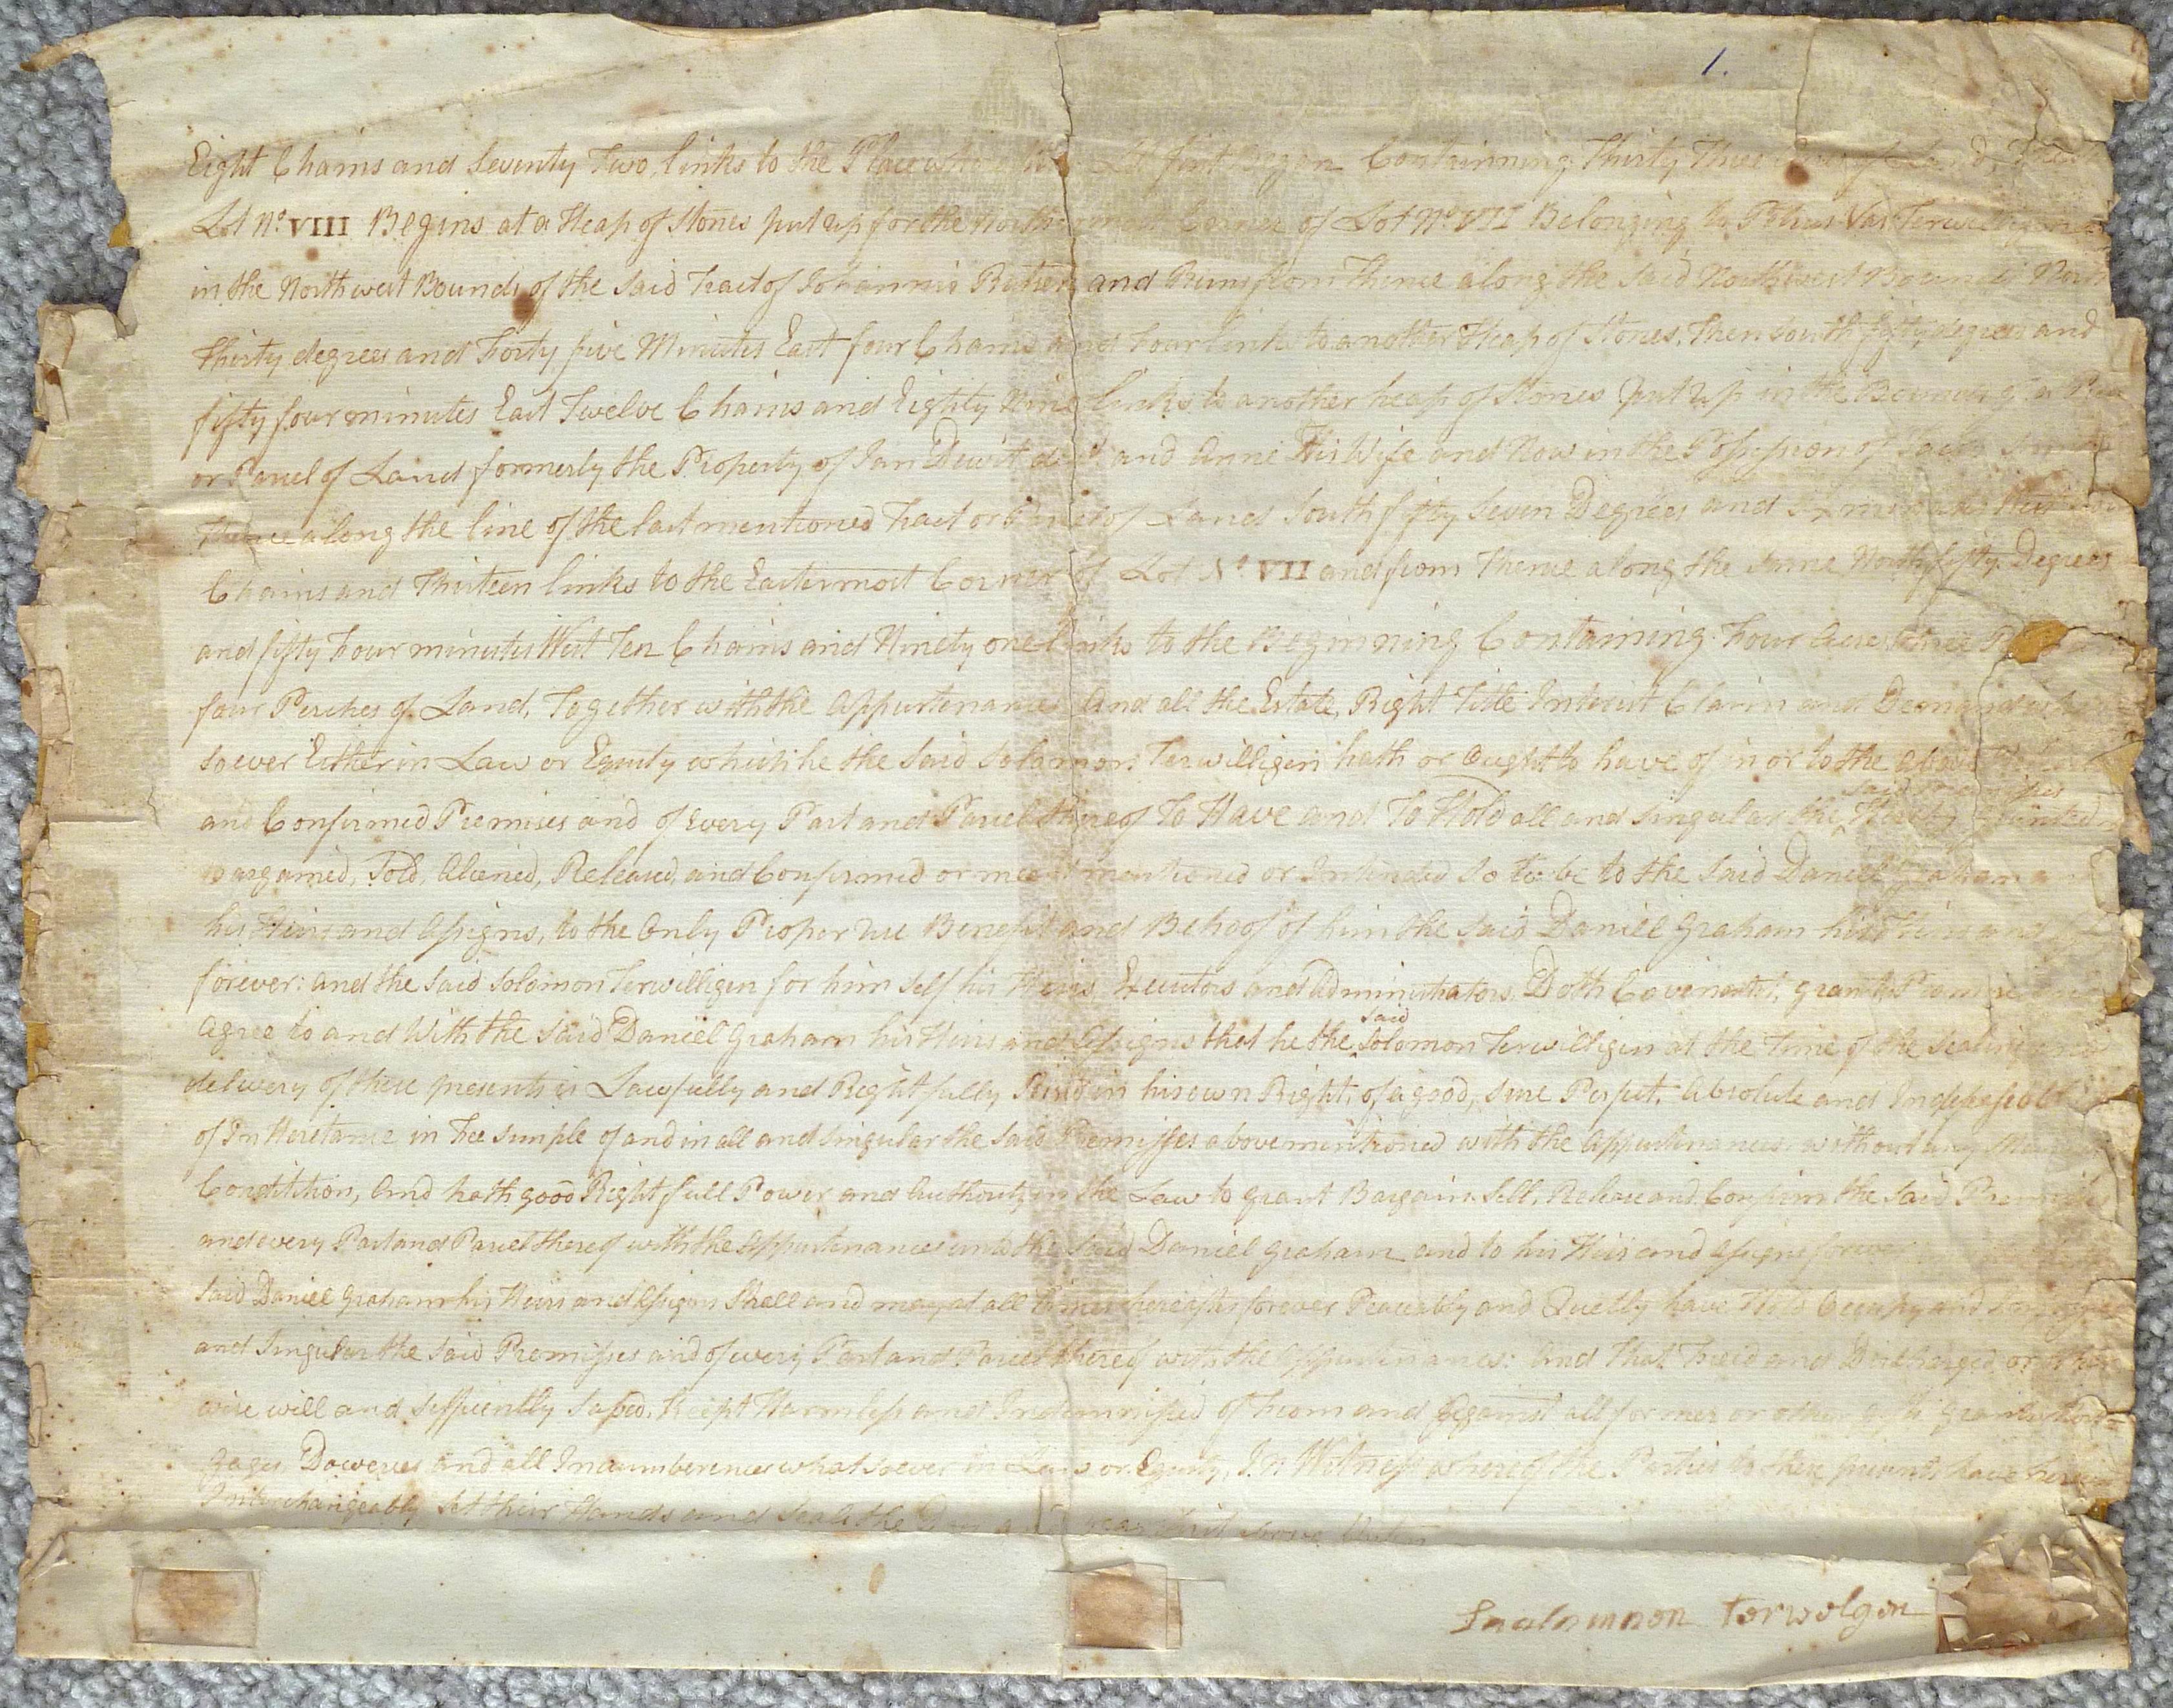 1.
Eight Chains and Seventy Two links to the Place where first Began Containing Thirty Three
Lot No. VIII Begins at a Heap of Stones put up for the North Corner of Lot No. VII Belonging to Petrus Van
in the Northwest Bounds of the said Tract of Johannis and Runs from Thence along the said Northwest Bounds North
Thirty degrees and Forty five Minutes East four Chains and Four links to another Heap of Stones, Then South fifty degrees and
fifty four minutes East Twelve Chains and Eighty Nine links to another heap of Stones put up in the Bounds of a
or Parcel of Land formerly the Property of Jan Dewit and Anne His Wife and Now in the Possession of
Thence along the line of the last mentioned Tract or Parcel of Land South fifty Seven Degrees and six minutes West
Chains and Thirteen links to the Eastermost Corner of Lot No. VII and from Thence along the same North fifty Degrees
and fifty Four minutes West Ten Chains and Ninety one links to the Beginning Containing Four Acres
four Perches of Land, Together with the Appurtenances And all the Estate, Right Title Interest Claim and Demand
soever Either in Law or Equity which he the Said Solomon Terwilligen hath or Ought to have of in or to the above
and Confirmed Premises and of Every Part and Parcel thereof To Have and To Hold all and Singular the said Premises Hereby Granted
Bargained, Sold, Aliened, Released, and Confirmed or meant mentioned or Intended So to be to the Said Daniel Graham
his Heirs and Assigns, to the Only Proper Use Benefit and Behoof of him the Said Daniel Graham his Heirs and
forever: and the Said Solomon Terwilligen for him Self his Heirs Executors and Administrators, Doth Covenant, grant Promise
Agree to and With the Said Daniel Graham his Heirs and Assigns that he the said Solomon Terwilligen at the Time of the Sealing and
delivery of these presents is Lawfully and Rightfully Seized in his own Right, of a good, Sure Perfect, Absolute and Indefeasable
of Inheritance in Fee Simple of and in all and Singular the Said Premisses above mentioned with the Appurtenances without any
Condition, And hath good Right full Power and Authority in the Law to grant Bargain Sell, Release and Confirm the Said Premises
and every Part and Parcel thereof with the Appurtenances unto the Said Daniel Graham and to his Heirs and Assigns forever
Said Daniel Graham his Heirs and Assigns Shall and may at all times hereafter forever Peaceably and Quietly have Hold Occupy and
and Singular the Said Premisses and of every Part and Parcel thereof with the Appurtenances: And that Freed and Discharged or other
wise well and Sufficiently Saved, Keept Harmless and Indemnified of From and Against all former or other gifts grants
gages Doweries and all Incumberences whatsoever in Law or Equity, In Witness whereof the Parties to these presents have
Interchangeably Set their Hands and Seals the Day and year first above
Saalomnon terwelgen